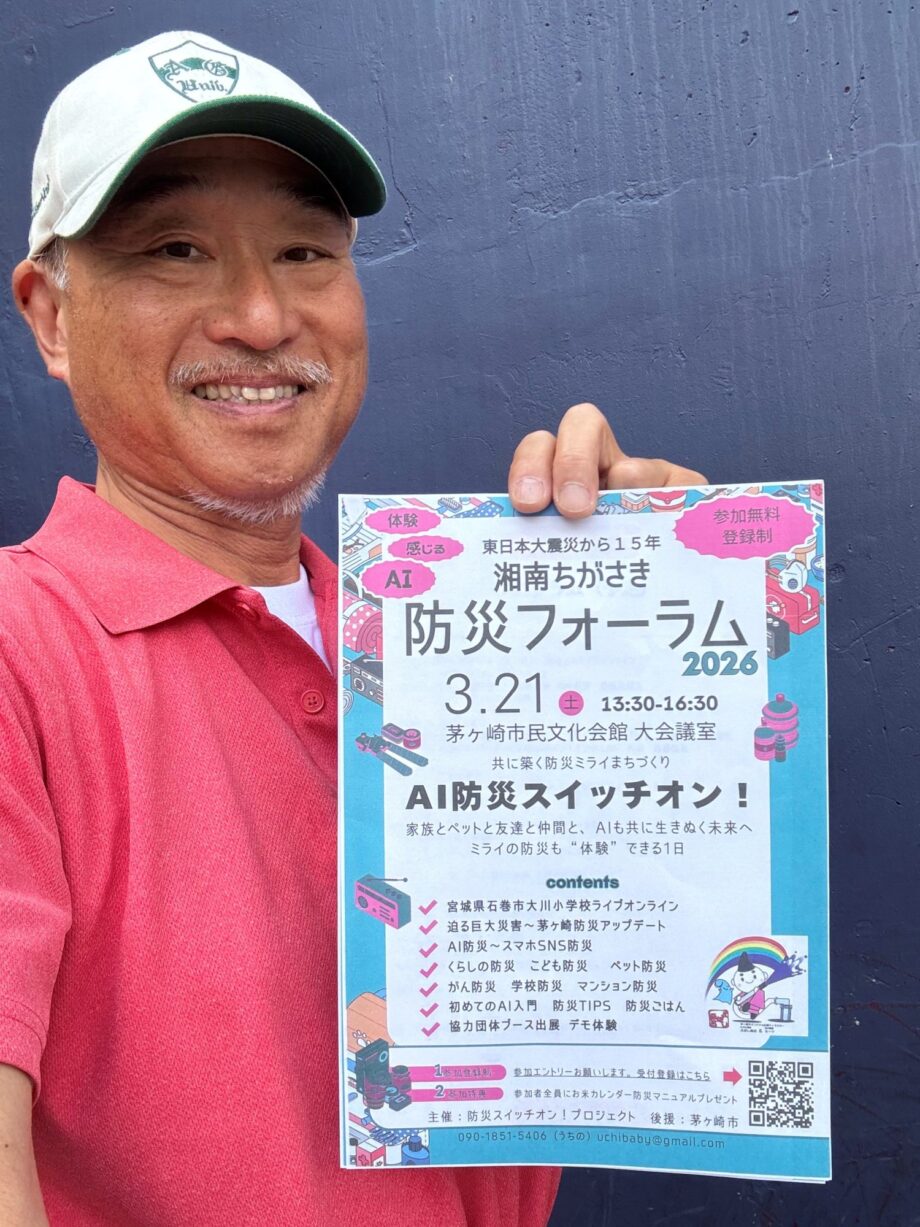 A G
Univ.
体験
感じる
AI
参加無料
登録制
東日本大震災から15年
湘南ちがさき
防災フォーラム
2026
3.21 土 13:30-16:30
茅ヶ崎市民文化会館 大会議室
共に築く防災ミライまちづくり
AI防災スイッチオン！
家族とペットと友達と仲間と、AIも共に生きぬく未来へ
ミライの防災も“体験”できる1日
contents
宮城県石巻市大川小学校ライブオンライン
迫る巨大災害～茅ヶ崎防災アップデート
AI防災～スマホSNS防災
くらしの防災 こども防災 ペット防災
がん防災 学校防災 マンション防災
初めてのAI入門 防災TIPS 防災ごはん
協力団体ブース出展 デモ体験
1 参加登録制 参加エントリーお願いします。受付登録はこちら
2 参加特典 参加者全員にお米カレンダー防災マニュアルプレゼント
主催：防災スイッチオン！プロジェクト 後援：茅ヶ崎市
090-1851-5406（うちの）uchibaby@gmail.com